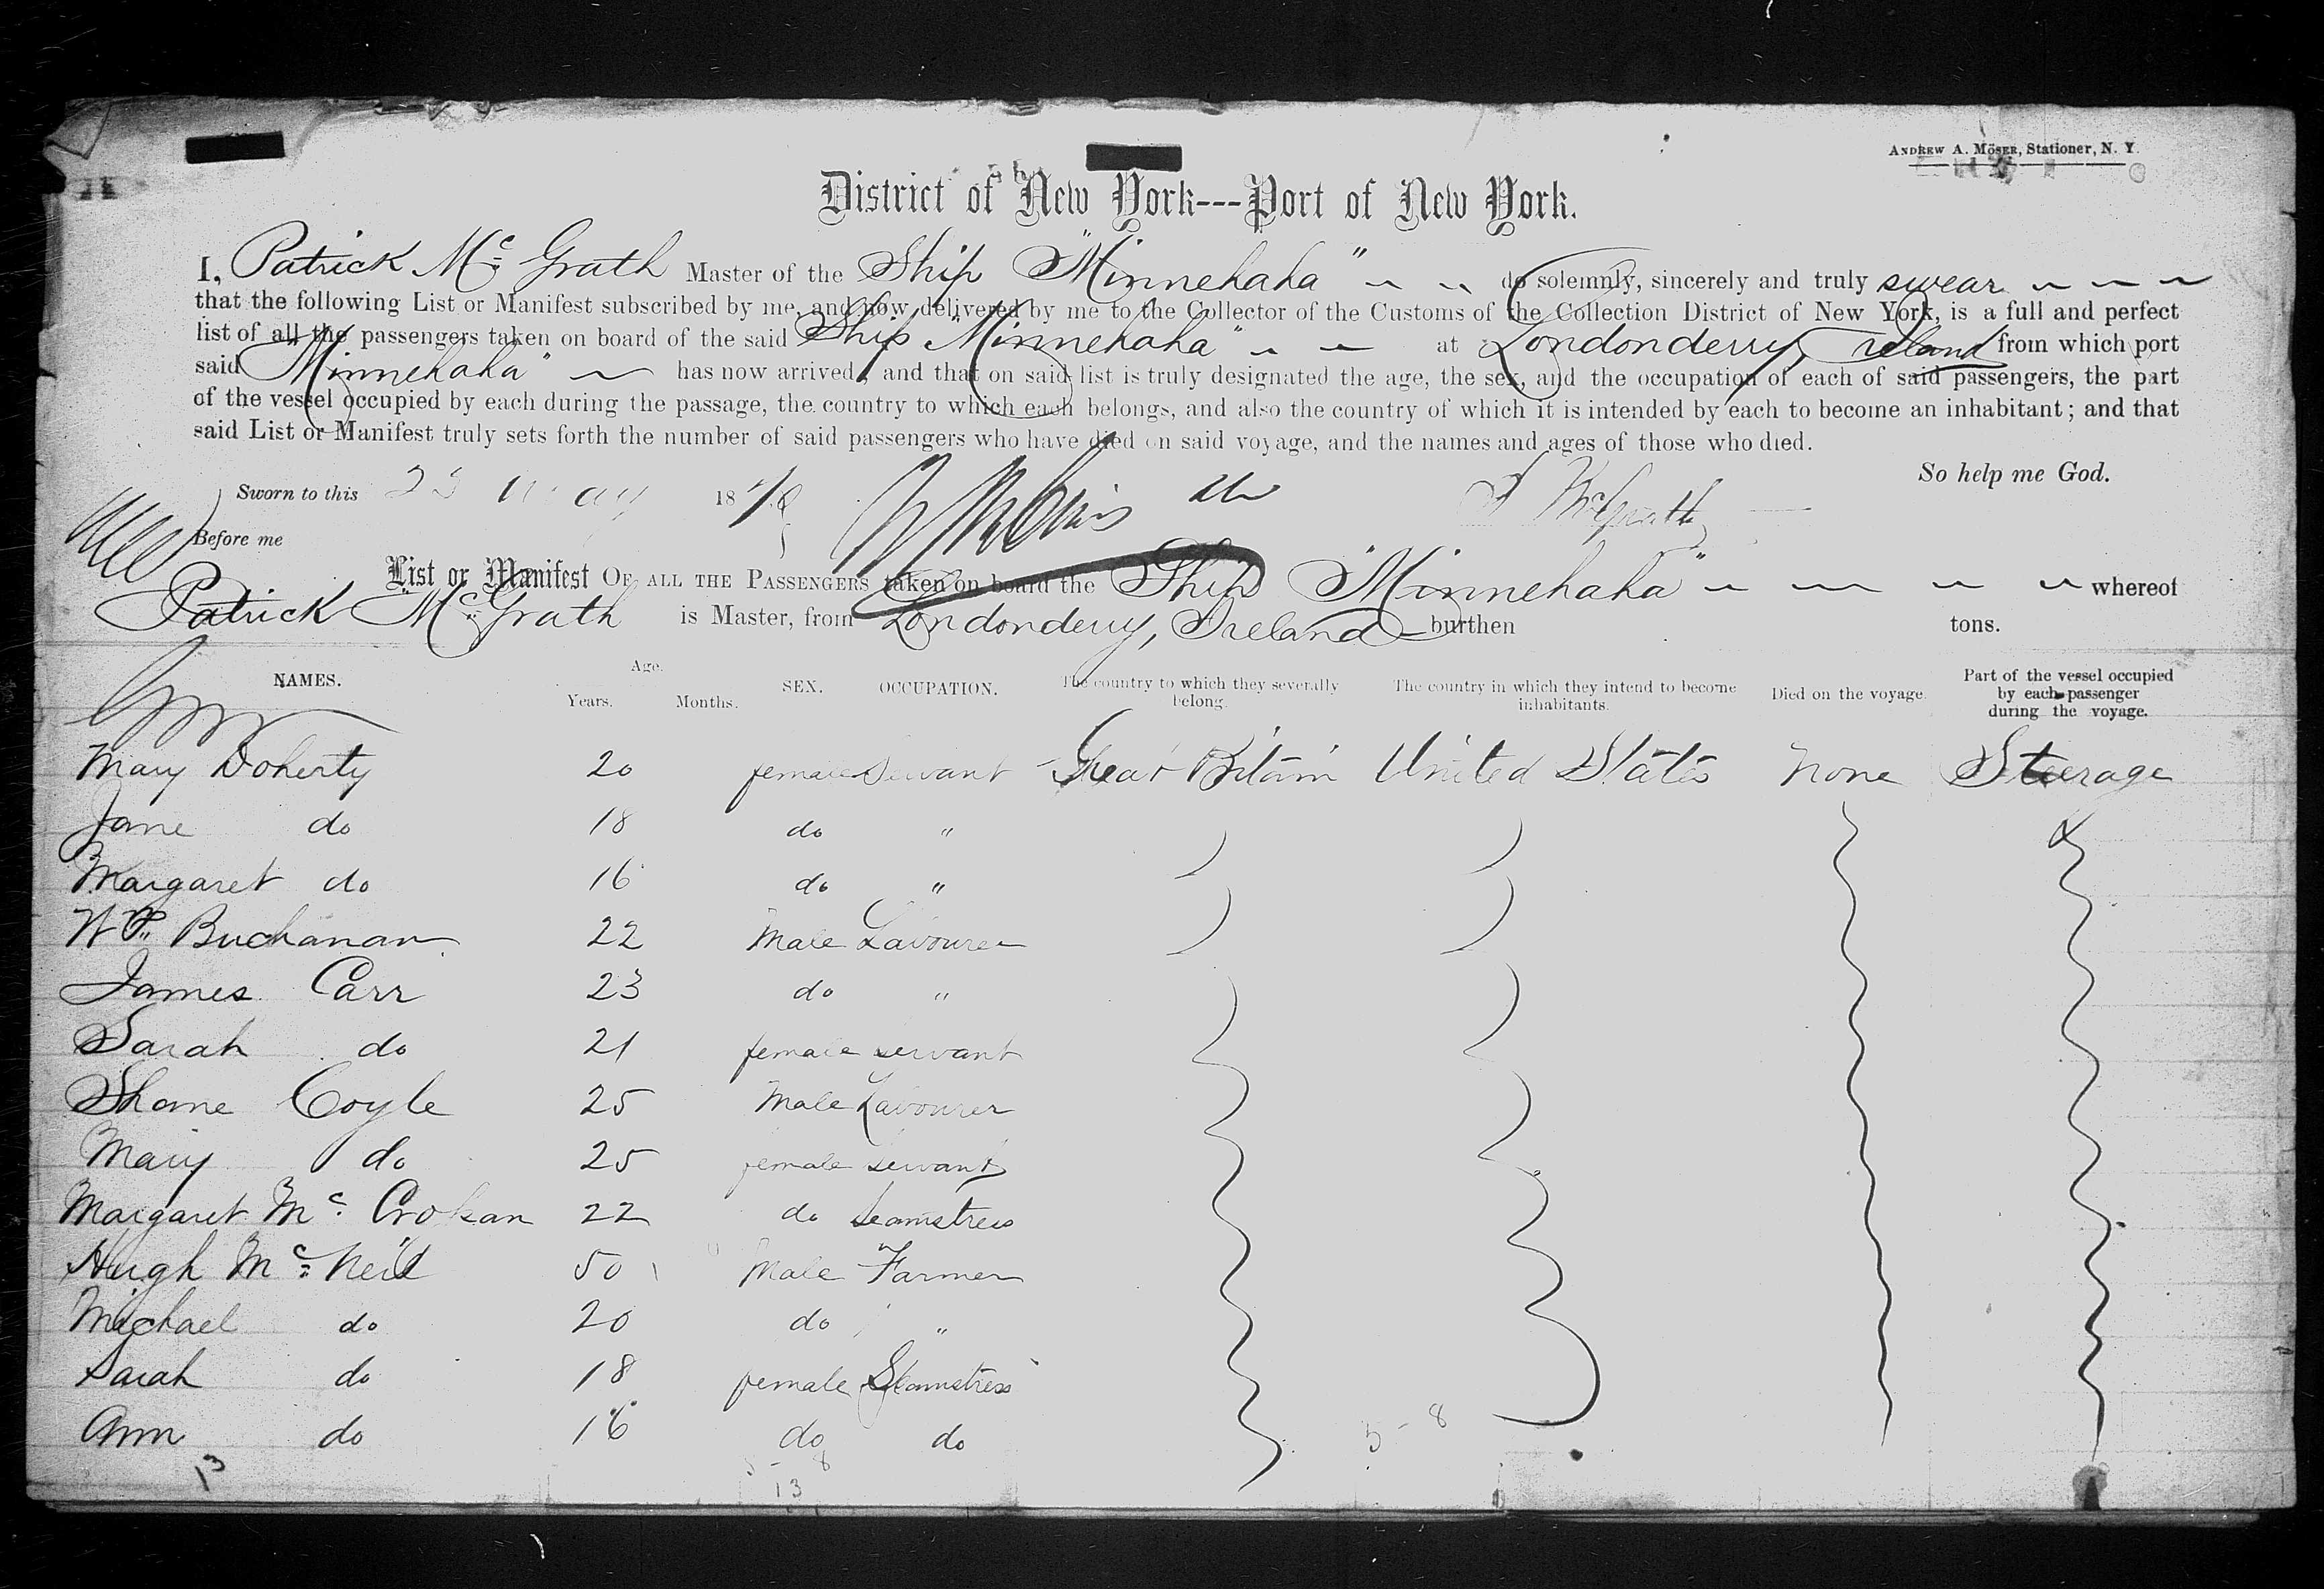 ANDREW A. MÖSER, Stationer, N. Y.
District of New York---Port of New York.
I, Patrick Mc Grath Master of the Ship "Minnehaha" do solemnly, sincerely and truly swear
that the following List or Manifest subscribed by me, and now delivered by me to the Collector of the Customs of the Collection District of New York, is a full and perfect
list of all the passengers taken on board of the said Ship "Minnehaha" at Londonderry, Ireland from which port
said "Minnehaha" has now arrived, and that on said list is truly designated the age, the sex, and the occupation of each of said passengers, the part
of the vessel occupied by each during the passage, the country to which each belongs, and also the country of which it is intended by each to become an inhabitant; and that
said List or Manifest truly sets forth the number of said passengers who have died on said voyage, and the names and ages of those who died.
So help me God.
Sworn to this May 18 P McGrath
Before me
List or Manifest OF ALL THE PASSENGERS taken on board the Ship "Minnehaha" whereof
Patrick McGrath is Master, from Londonderry, Ireland burthen tons.
NAMES. Age. Years. Months. SEX. OCCUPATION. The country to which they severally belong. The country in which they intend to become inhabitants. Died on the voyage. Part of the vessel occupied by each passenger during the voyage.
Mary Doherty 20 female Servant Great Britain United States None Steerage
Jane do 18 do "
Margaret do 16 do "
Wm Buchanan 22 Male Labourer
James Carr 23 do "
Sarah do 21 female servant
Shane Coyle 25 Male Labourer
Mary do 25 female servant
Margaret Mc 22 do Seamstress
Hugh Mc Neil 50 Male Farmer
Michael do 20 do "
Sarah do 18 female Seamstress
Ann do 16 do do
5 - 8
13
5 - 8
13